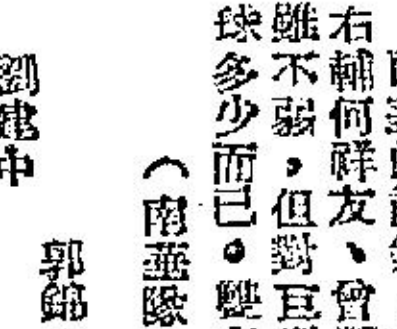 右輔何祥友、曾
雖不弱，但對巨
球多少而已。雙
（南華隊
郭錦
劉建中